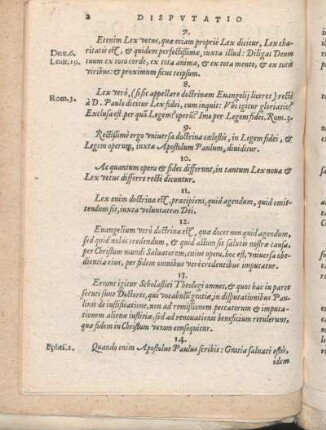 2 DISPVTATIO
7.
Etenim Lex vetus, quæ etiam propriè Lex dicitur, Lex cha-
Deu. 6. ritatis est, & quidem perfectissimæ, iuxta illud: Diliges Deum
Leuit. 19. tuum ex toto corde, ex tota anima, & ex tota mente, & ex totis
viribus: & proximum sicut teipsum.
8.
Lex verò, (si sic appellare doctrinam Euangelij liceret) rectè
Rom. 3. à D. Paulo dicitur Lex fidei, cum inquit: Vbi igitur gloriatio?
Exclusa est. per quã Legem? operũ? Imo per Legem fidei, Rom. 3.
9.
Rectissimè ergo vniuersa doctrina cælestis, in Legem fidei, &
Legem operum, iuxta Apostolum Paulum, diuiditur.
10.
Ac quantum opera & fides differunt, in tantum Lex noua &
Lex vetus differre rectè dicuntur.
11.
Lex enim doctrina est, præcipiens, quid agendum, quid omit-
tendum sit, iuxta voluntatem Dei.
12.
Euangelium verò doctrina est, quæ docet non quid agendum,
sed quid nobis credendum, & quid actum sit salutis nostræ causa,
per Christum mundi Saluatorem, cuius opera, hoc est, vniuersa obe-
dientia eius, per fidem omnibus verè credentibus imputatur.
13.
Errant igitur Scholastici Theologi omnes, & quos hac in parte
secuti sunt Doctores, qui vocabulũ gratiæ, in disputationibus Pauli-
nis de iustificatione, non ad remissionem peccatorum & imputa-
tionem alienæ iustitiæ, sed ad renouationis beneficium retulerunt,
qua fidem in Christum verum consequitur.
14.
Ephes. 2. Quando enim Apostolus Paulus scribit: Gratia saluati estis,
idem